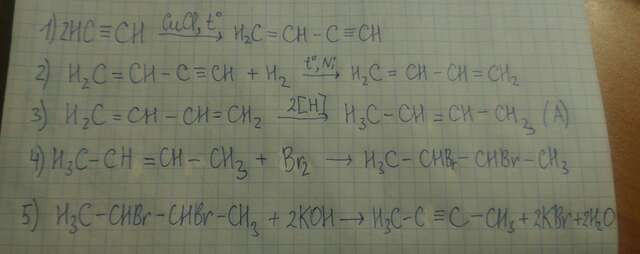 1) 2HC≡CH —CuCl, t°→ H₂C=CH-C≡CH
2) H₂C=CH-C≡CH + H₂ —t°, Ni→ H₂C=CH-CH=CH₂
3) H₂C=CH-CH=CH₂ —2[H]→ H₃C-CH=CH-CH₃ (A)
4) H₃C-CH=CH-CH₃ + Br₂ → H₃C-CHBr-CHBr-CH₃
5) H₃C-CHBr-CHBr-CH₃ + 2KOH → H₃C-C≡C-CH₃ + 2KBr + 2H₂O